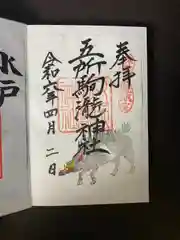 奉拝
五所駒瀧神社
令和六年四月二日
水戸